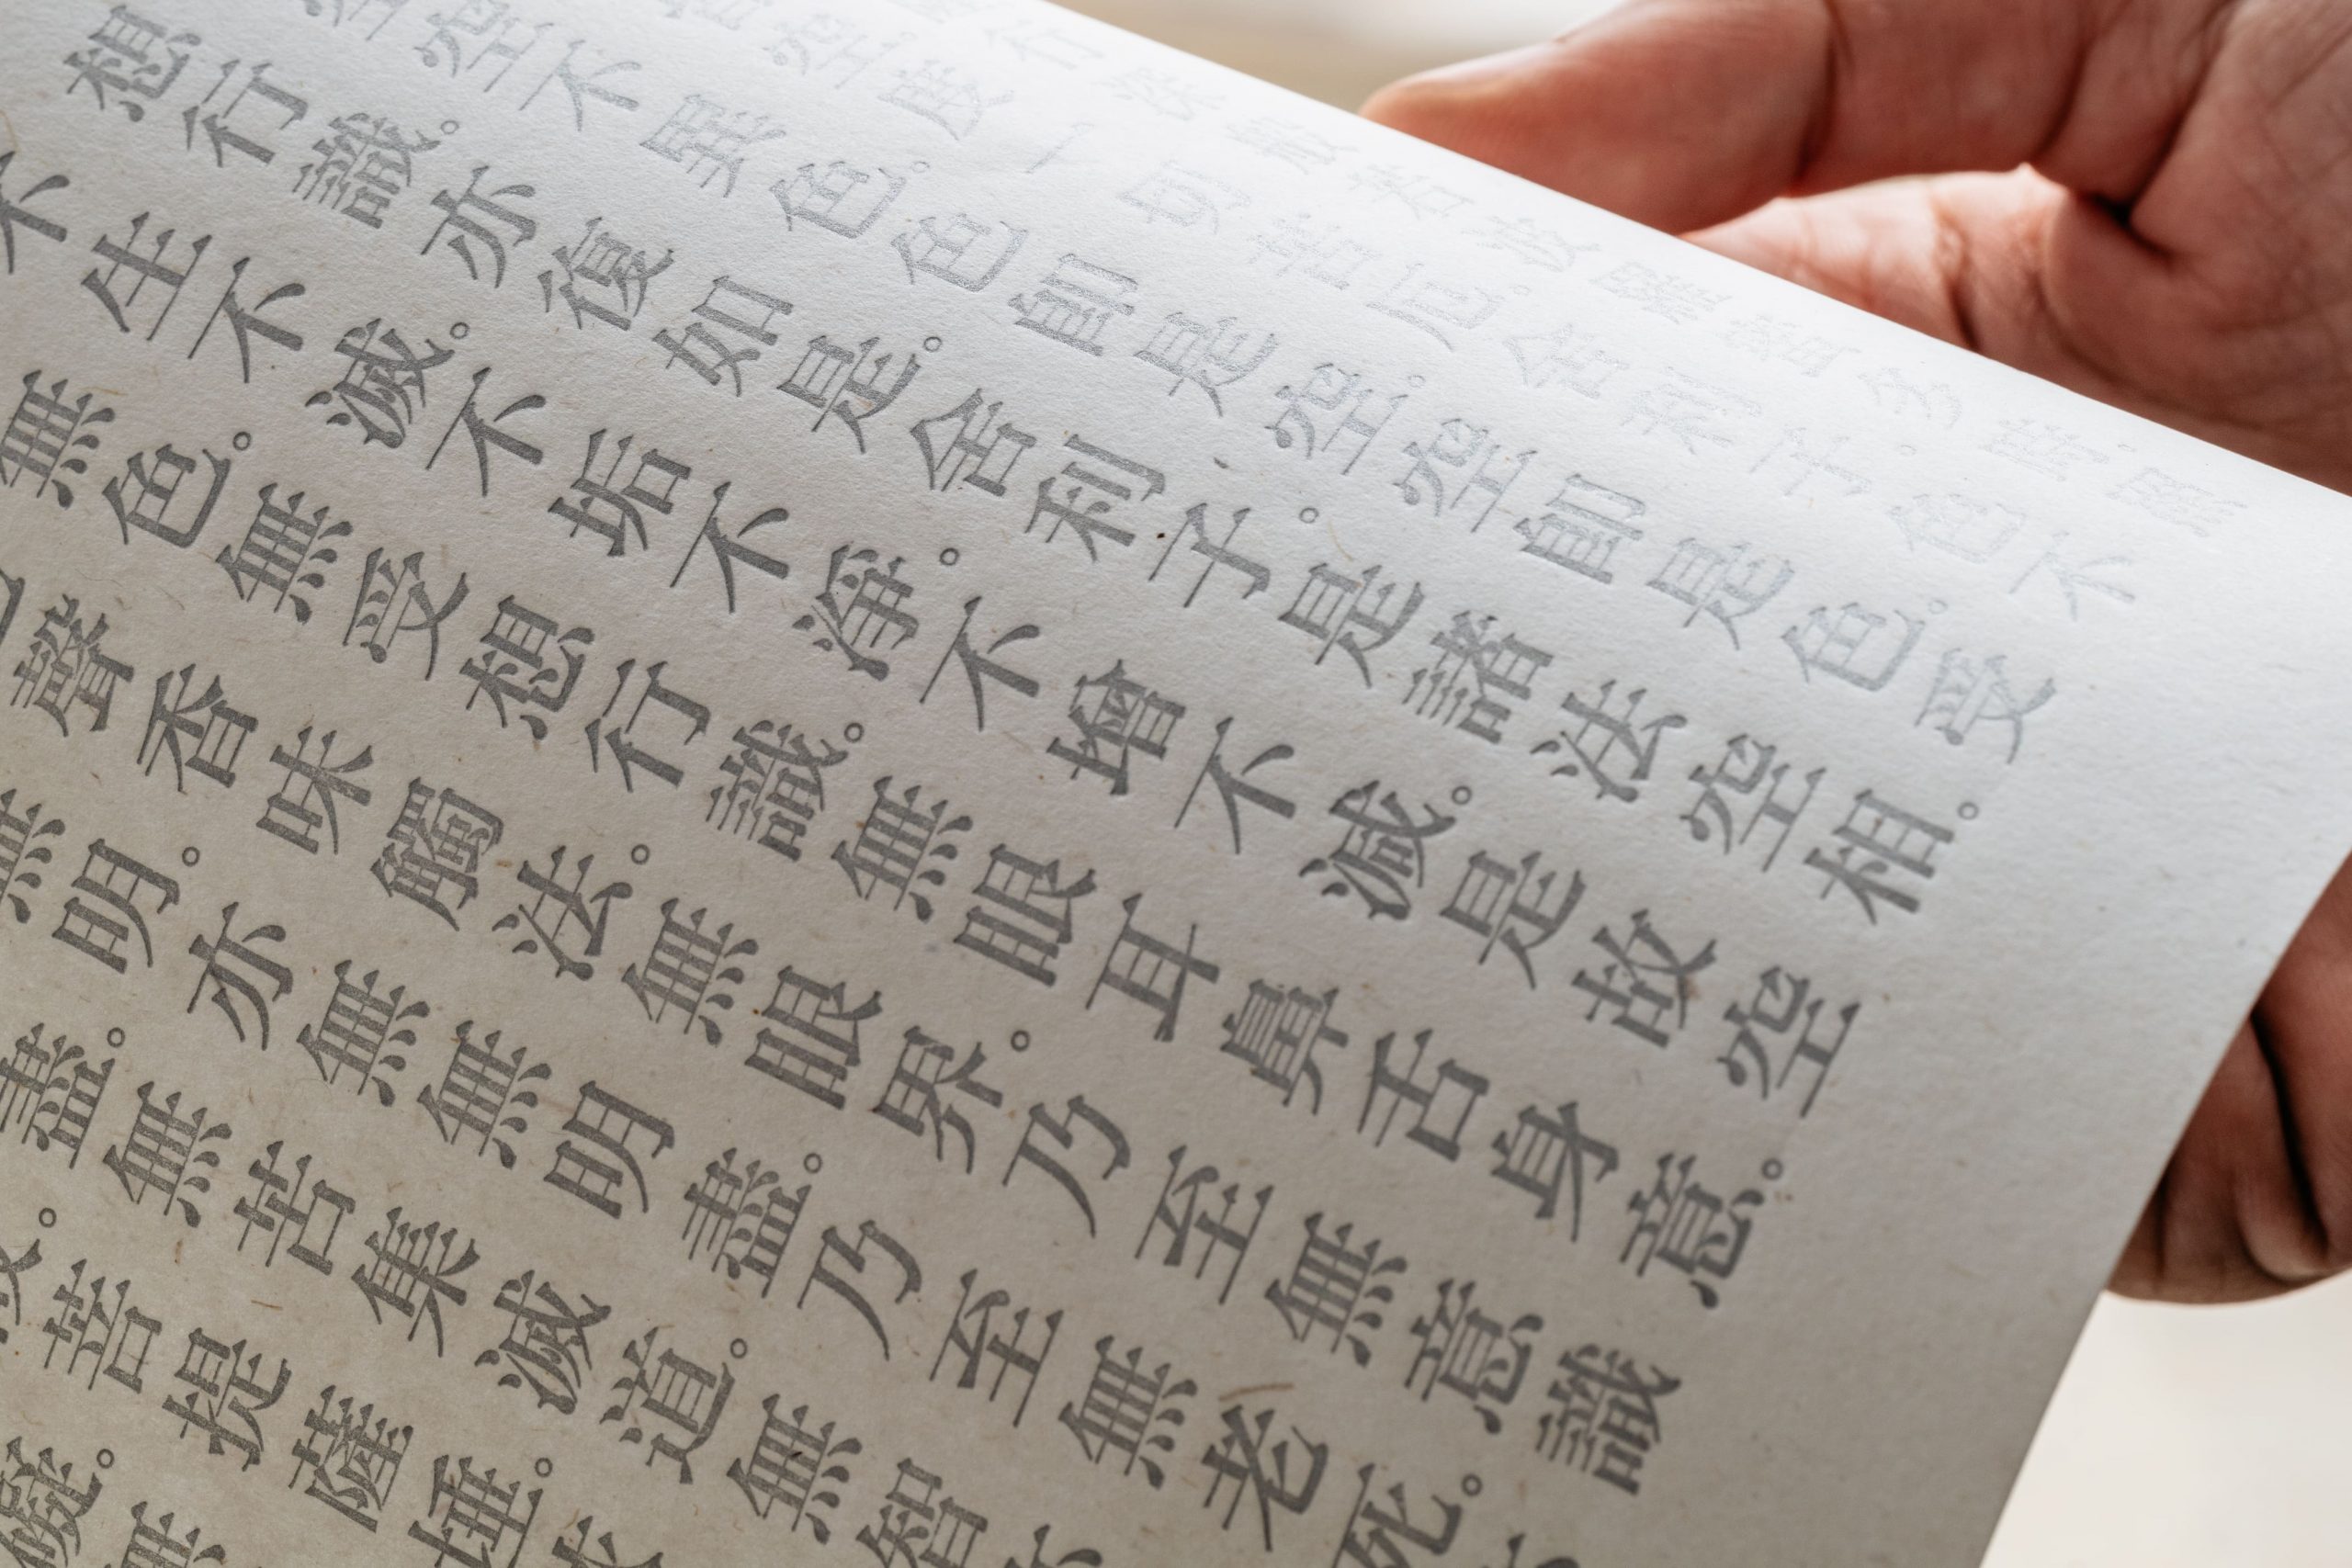 行深般若波羅蜜多時。照
空。度一切苦厄。舍利子。色不
空不異色。色卽是空。空卽是色。受
想行識。亦復如是。舍利子。是諸法空相。
不生不滅。不垢不淨。不增不減。是故空
無色。無受想行識。無眼耳鼻舌身意。
聲香味觸法。無眼界。乃至無意識
無明。亦無無明盡。乃至無老死。
盡。無苦集滅道。無智
菩提薩埵。依
礙。無